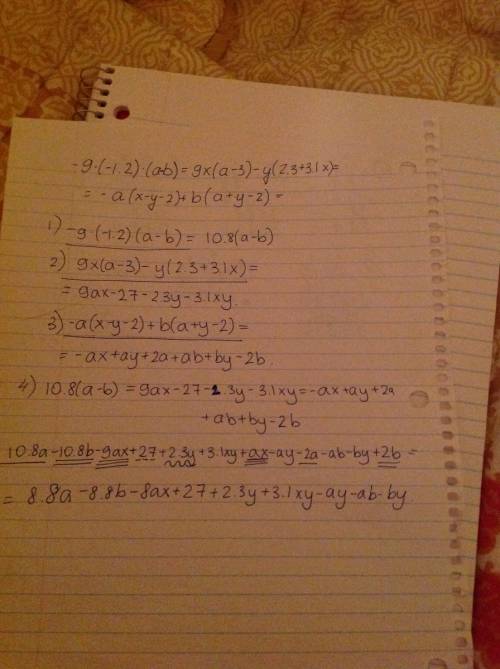 -9·(-1.2)·(a-b)=9x(a-3)-y(2.3+3.1x)=
= -a(x-y-2)+b(a+y-2)=
1) -9·(-1.2)(a-b)= 10.8(a-b)
2) 9x(a-3)-y(2.3+3.1x)=
= 9ax-27-2.3y-3.1xy.
3) -a(x-y-2)+b(a+y-2)=
= -ax+ay+2a+ab+by-2b.
4) 10.8(a-b)=9ax-27-2.3y-3.1xy=-ax+ay+2a
+ab+by-2b
10.8a-10.8b-9ax+27+2.3y+3.1xy+ax-ay-2a-ab-by+2b=
= 8.8a-8.8b-8ax+27+2.3y+3.1xy-ay-ab-by